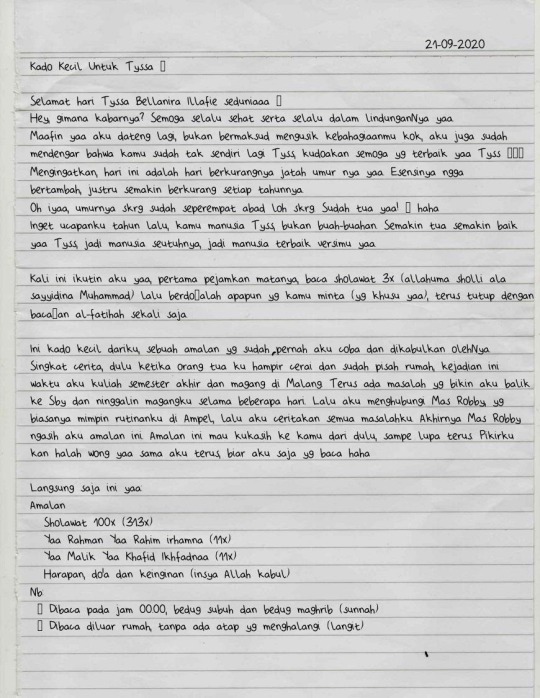 21-09-2020
Kado Kecil Untuk Tyssa ▯
Selamat hari Tyssa Bellanira Illafie seduniaaa ▯
Hey gimana kabarnya? Semoga selalu sehat serta selalu dalam lindunganNya yaa
Maafin yaa aku dateng lagi, bukan bermaksud mengusik kebahagiaanmu kok, aku juga sudah
mendengar bahwa kamu sudah tak sendiri lagi Tyss, kudoakan semoga yg terbaik yaa Tyss ▯▯▯
Mengingatkan, hari ini adalah hari berkurangnya jatah umur nya yaa Esensinya ngga
bertambah, justru semakin berkurang setiap tahunnya
Oh iyaa, umurnya skrg sudah seperempat abad loh skrg Sudah tua yaa! ▯ haha
Inget ucapanku tahun lalu, kamu manusia Tyss, bukan buah-buahan Semakin tua semakin baik
yaa Tyss, jadi manusia seutuhnya, jadi manusia terbaik versimu yaa
Kali ini ikutin aku yaa, pertama pejamkan matanya, baca sholawat 3x (allahuma sholli ala
sayyidina Muhammad) lalu berdo▯alah apapun yg kamu minta (yg khusu yaa), terus tutup dengan
baca▯an al-fatihah sekali saja
Ini kado kecil dariku, sebuah amalan yg sudah pernah aku coba dan dikabulkan olehNya
Singkat cerita, dulu ketika orang tua ku hampir cerai dan sudah pisah rumah, kejadian ini
waktu aku kuliah semester akhir dan magang di Malang Terus ada masalah yg bikin aku balik
ke Sby dan ninggalin magangku selama beberapa hari Lalu aku menghubungi Mas Robby yg
biasanya mimpin rutinanku di Ampel, lalu aku ceritakan semua masalahku Akhirnya Mas Robby
ngasih aku amalan ini Amalan ini mau kukasih ke kamu dari dulu, sampe lupa terus Pikirku
kan halah wong yaa sama aku terus, biar aku saja yg baca haha
Langsung saja ini yaa
Amalan
Sholawat 100x (313x)
Yaa Rahman Yaa Rahim irhamna (11x)
Yaa Malik Yaa Khafid Ikhfadnaa (11x)
Harapan, do'a dan keinginan (insya Allah kabul)
Nb
▯ Dibaca pada jam 00.00, bedug subuh dan bedug maghrib (sunnah)
▯ Dibaca diluar rumah, tanpa ada atap yg menghalangi (langit)